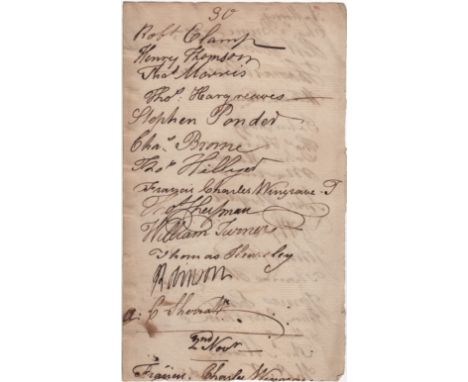 30
Robt Clamp
Henry Thomson
Thos Morris
Thos: Hargreaves
Stephen Ponder
Chas. Brome
Thos Hillyer
Francis Charles Wingrave
William Turner
Thomas
2nd Novr
Francis. Charles Wingrave